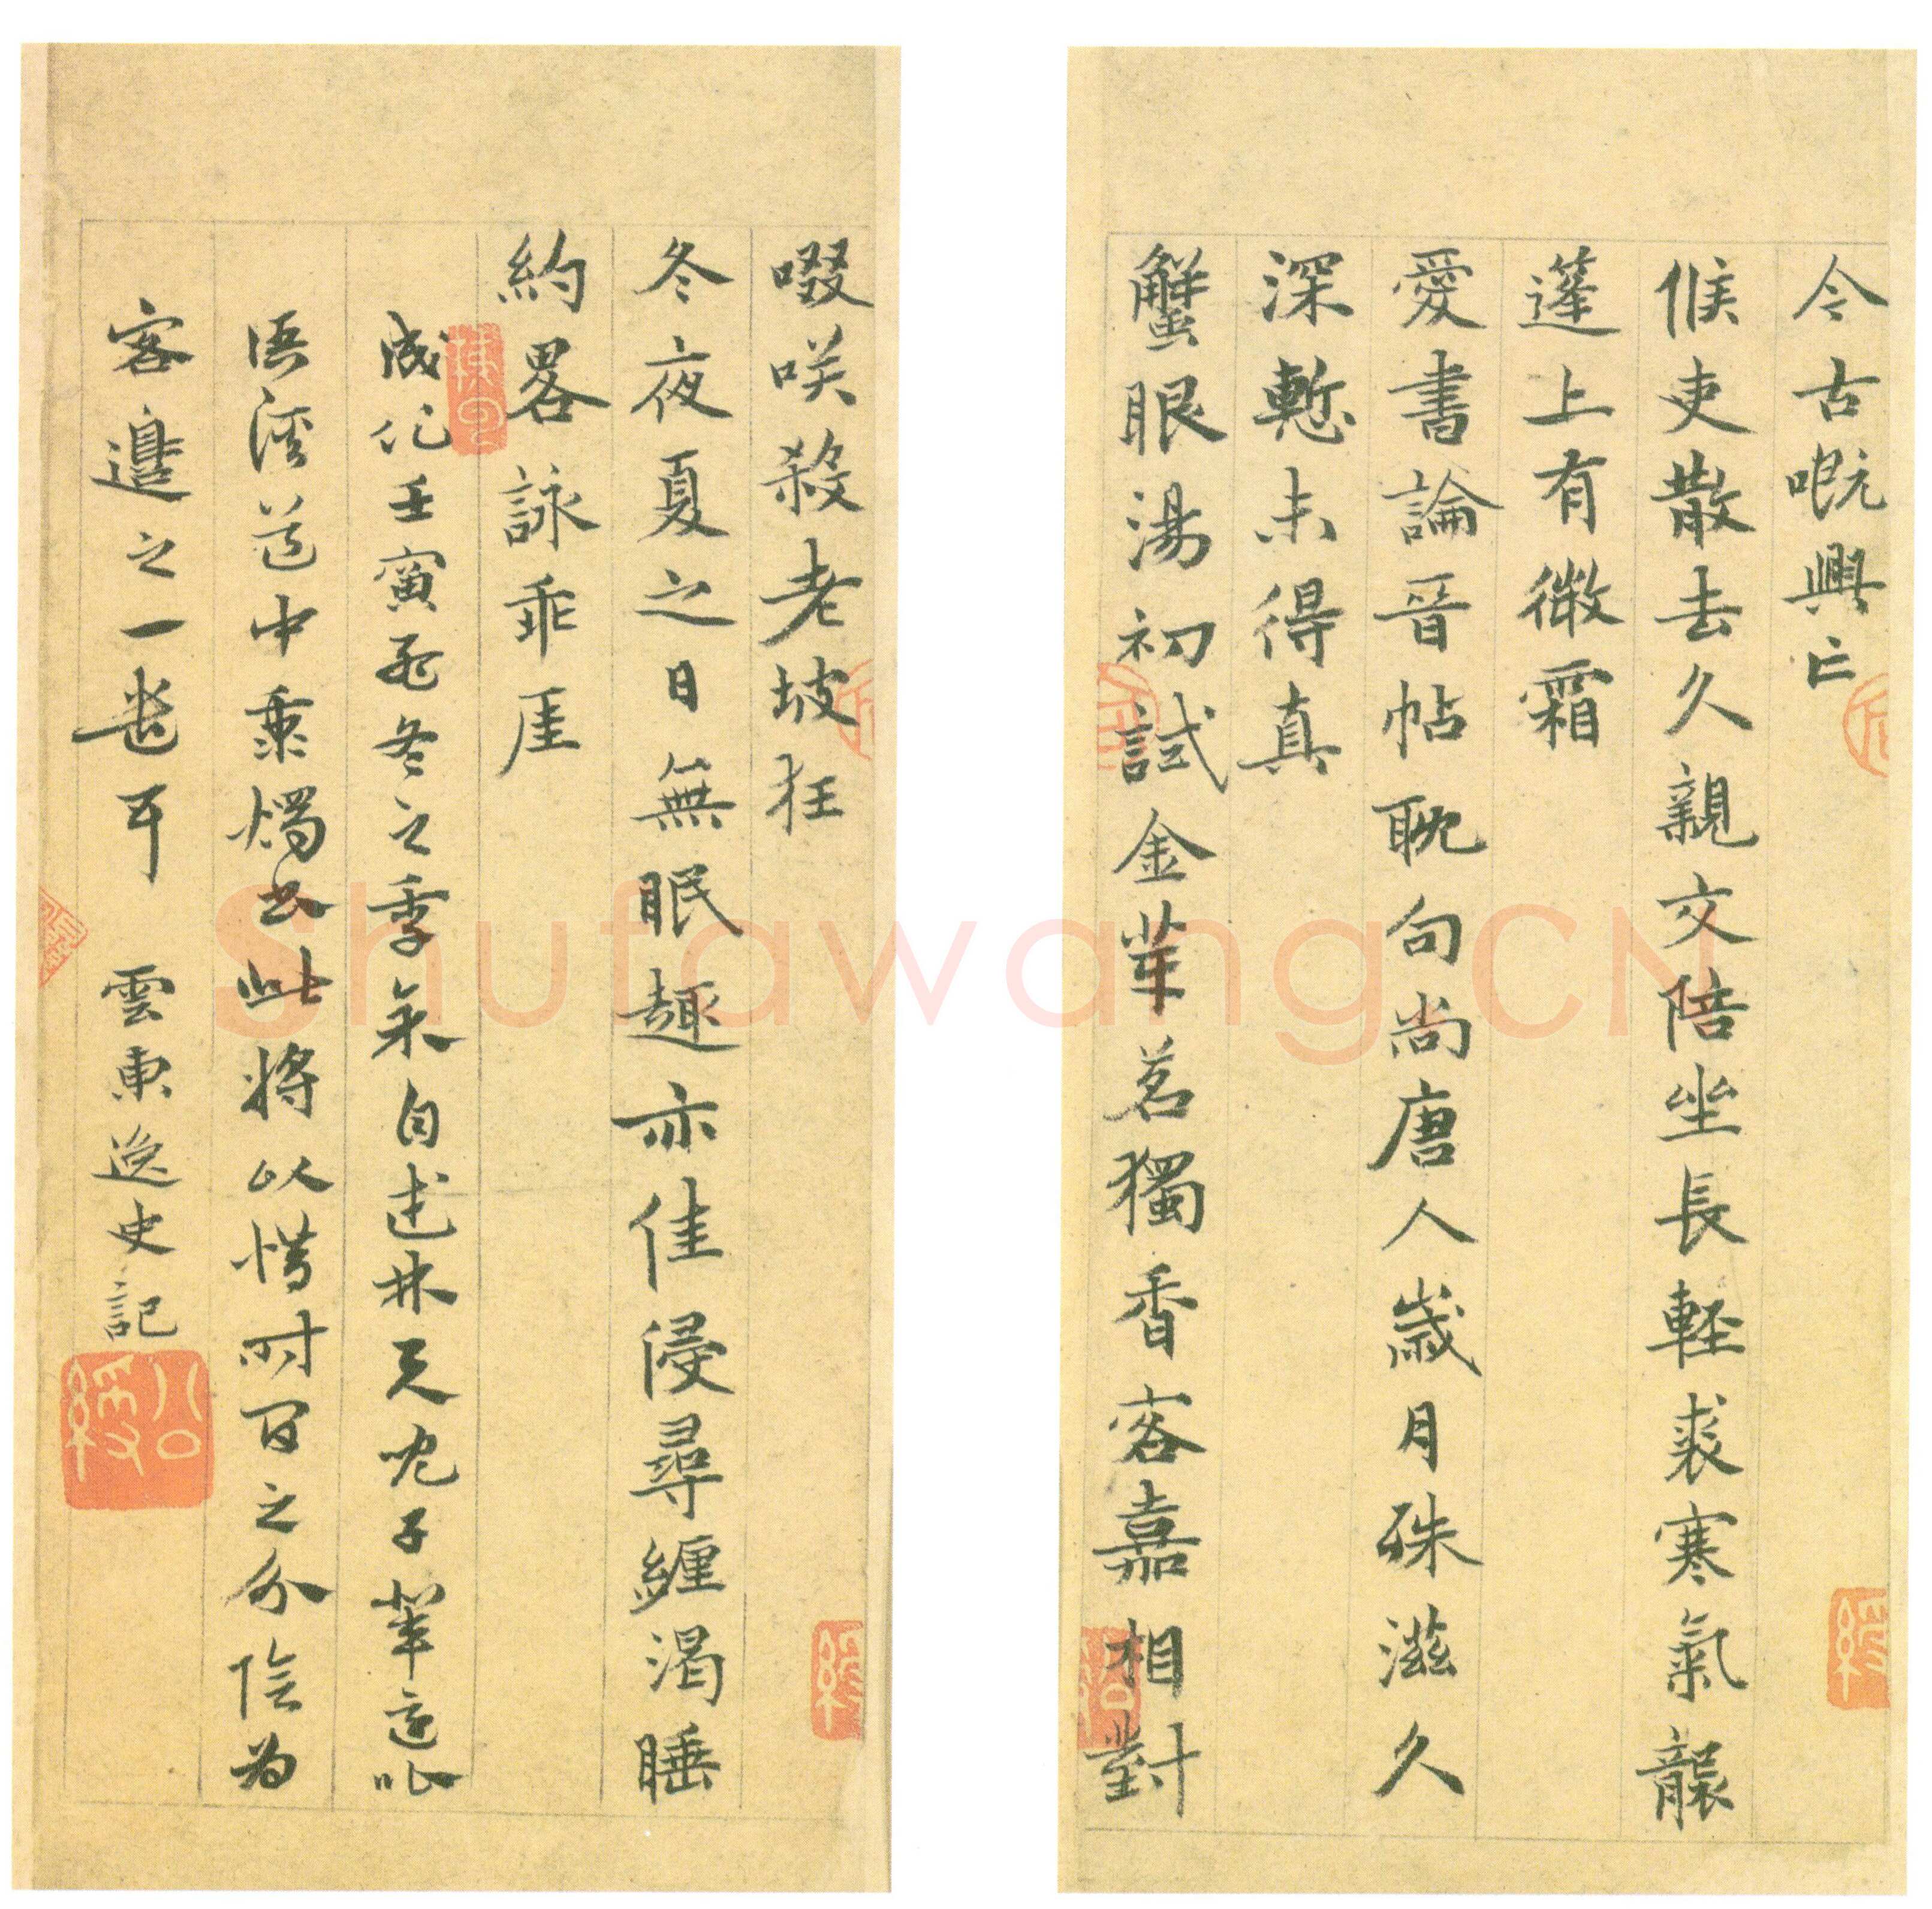 今古嘅興亡
候吏散去久親交陪坐長輕裘寒氣襲
蓬上有微霜
愛書論晉帖耽句尚唐人歲月殊滋久
深慙未得真
蟹眼湯初試金芽茗獨香客嘉相對
啜咲殺老坡狂
冬夜夏之日無眠趣亦佳侵尋纏渴睡
約畧詠乖厓
成化壬寅孟冬之季余自述
語溪道中秉燭書此將以惜時百之分陰為
客邊之一 耳 雲東逸史記
公綬
Shufawang.CN